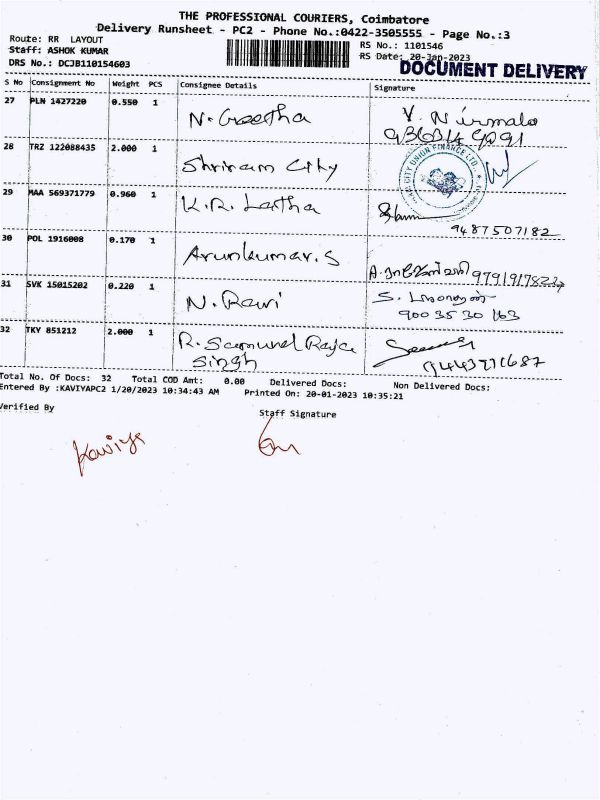 THE PROFESSIONAL COURIERS, Coimbatore
Delivery Runsheet - PC2 - Phone No.:0422-3505555 - Page No.:3
Route: RR LAYOUT
RS No.: 1101546
Staff: ASHOK KUMAR
RS Date: 20-Jan-2023
DRS No.: DCJB110154603
DOCUMENT DELIVERY
S No Consignment No Weight PCS Consignee Details Signature
27 PLN 1427220 0.550 1 N. Geetha V. Nirmala
28 TRZ 122088435 2.000 1 Shriram City
CITY UNION FINANCE LTD.
29 MAA 569371779 0.960 1 K.R. Latha
9487507182
30 POL 1916008 0.170 1 Arunkumar. S
31 SVK 15015202 0.220 1 N. Ravi
900 35 30 163
32 TKY 851212 2.000 1 R. Samuel Raja
Singh
Total No. Of Docs: 32 Total COD Amt: 0.00 Delivered Docs: Non Delivered Docs:
Entered By :KAVIYAPC2 1/20/2023 10:34:43 AM Printed On: 20-01-2023 10:35:21
Verified By Staff Signature
Kaviya